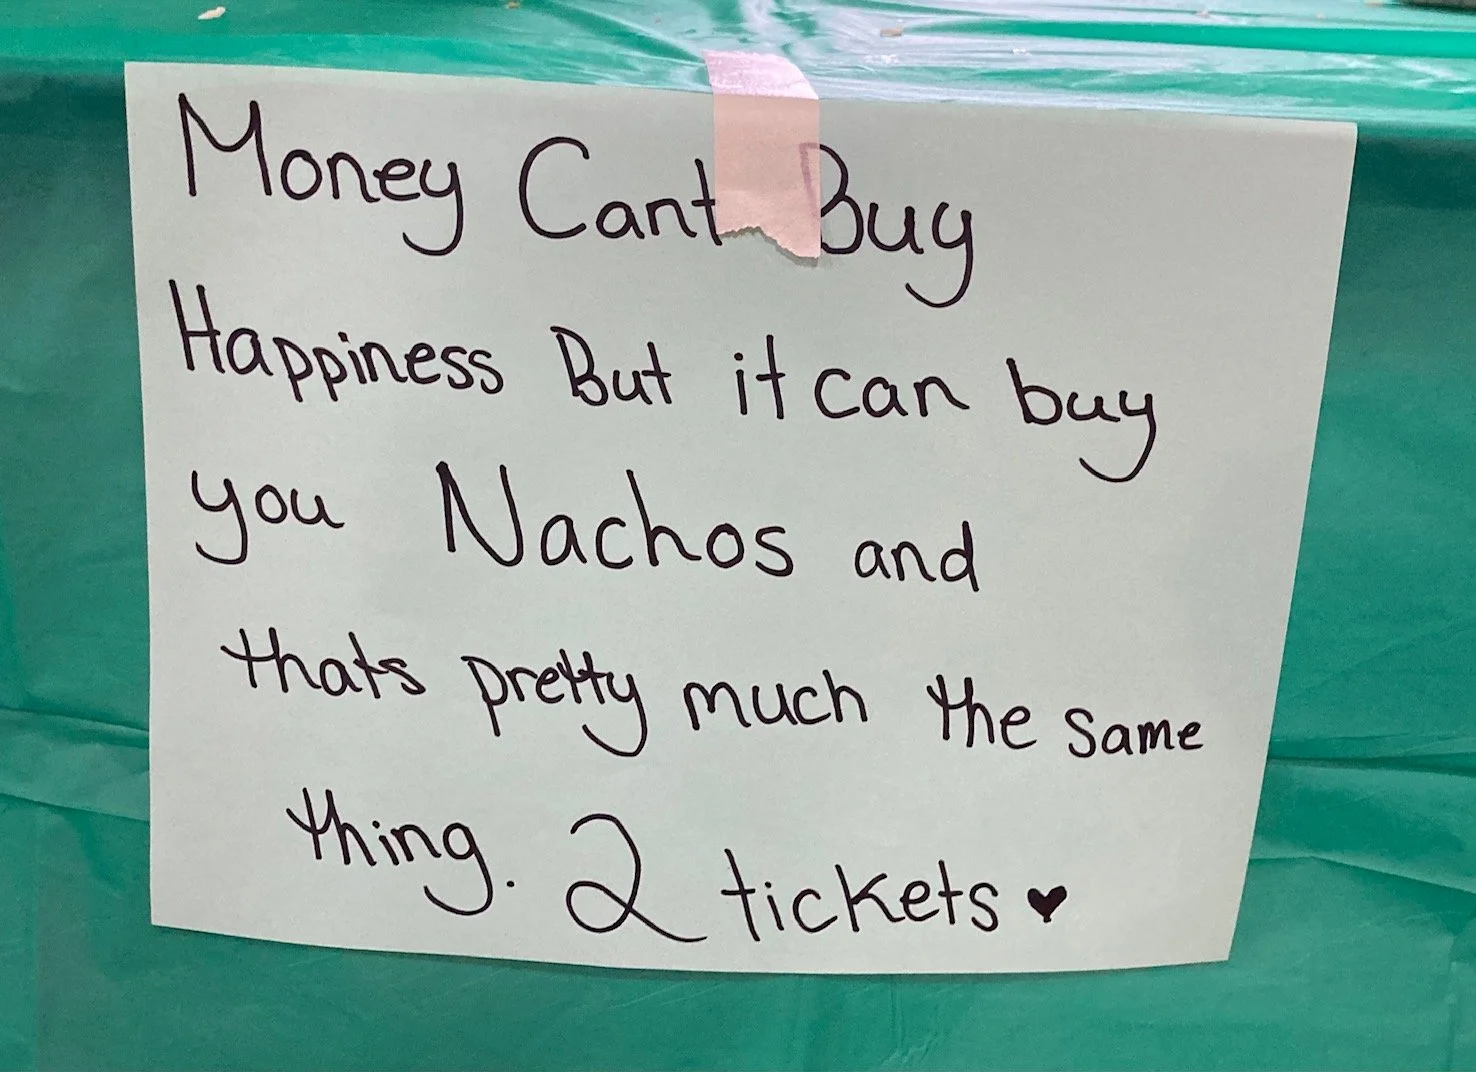 Money Cant Buy
Happiness But it can buy
you Nachos and
thats pretty much the same
thing. 2 tickets ♥